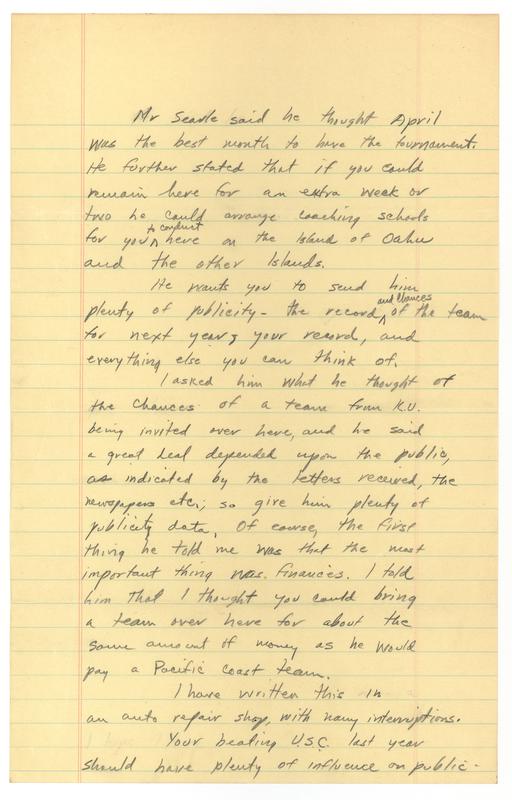 Mr Searle said he thought April
was the best month to have the tournament.
He further stated that if you could
remain here for an extra week or
two he could arrange coaching schools
for you to conduct here on the Island of Oahu
and the other Islands.
He wants you to send him
plenty of publicity - the record and chances of the team
for next year, your record, and
everything else you can think of.
I asked him what he thought of
the chances of a team from K.U.
being invited over here, and he said
a great deal depended upon the public,
as indicated by the letters received, the
newspapers etc; so give him plenty of
publicity data. Of course, the first
thing he told me was that the most
important thing was finances. I told
him that I thought you could bring
a team over here for about the
same amount of money as he would
pay a Pacific Coast team.
I have written this in
an auto repair shop, with many interruptions.
Your beating U.S.C. last year
should have plenty of influence on public-